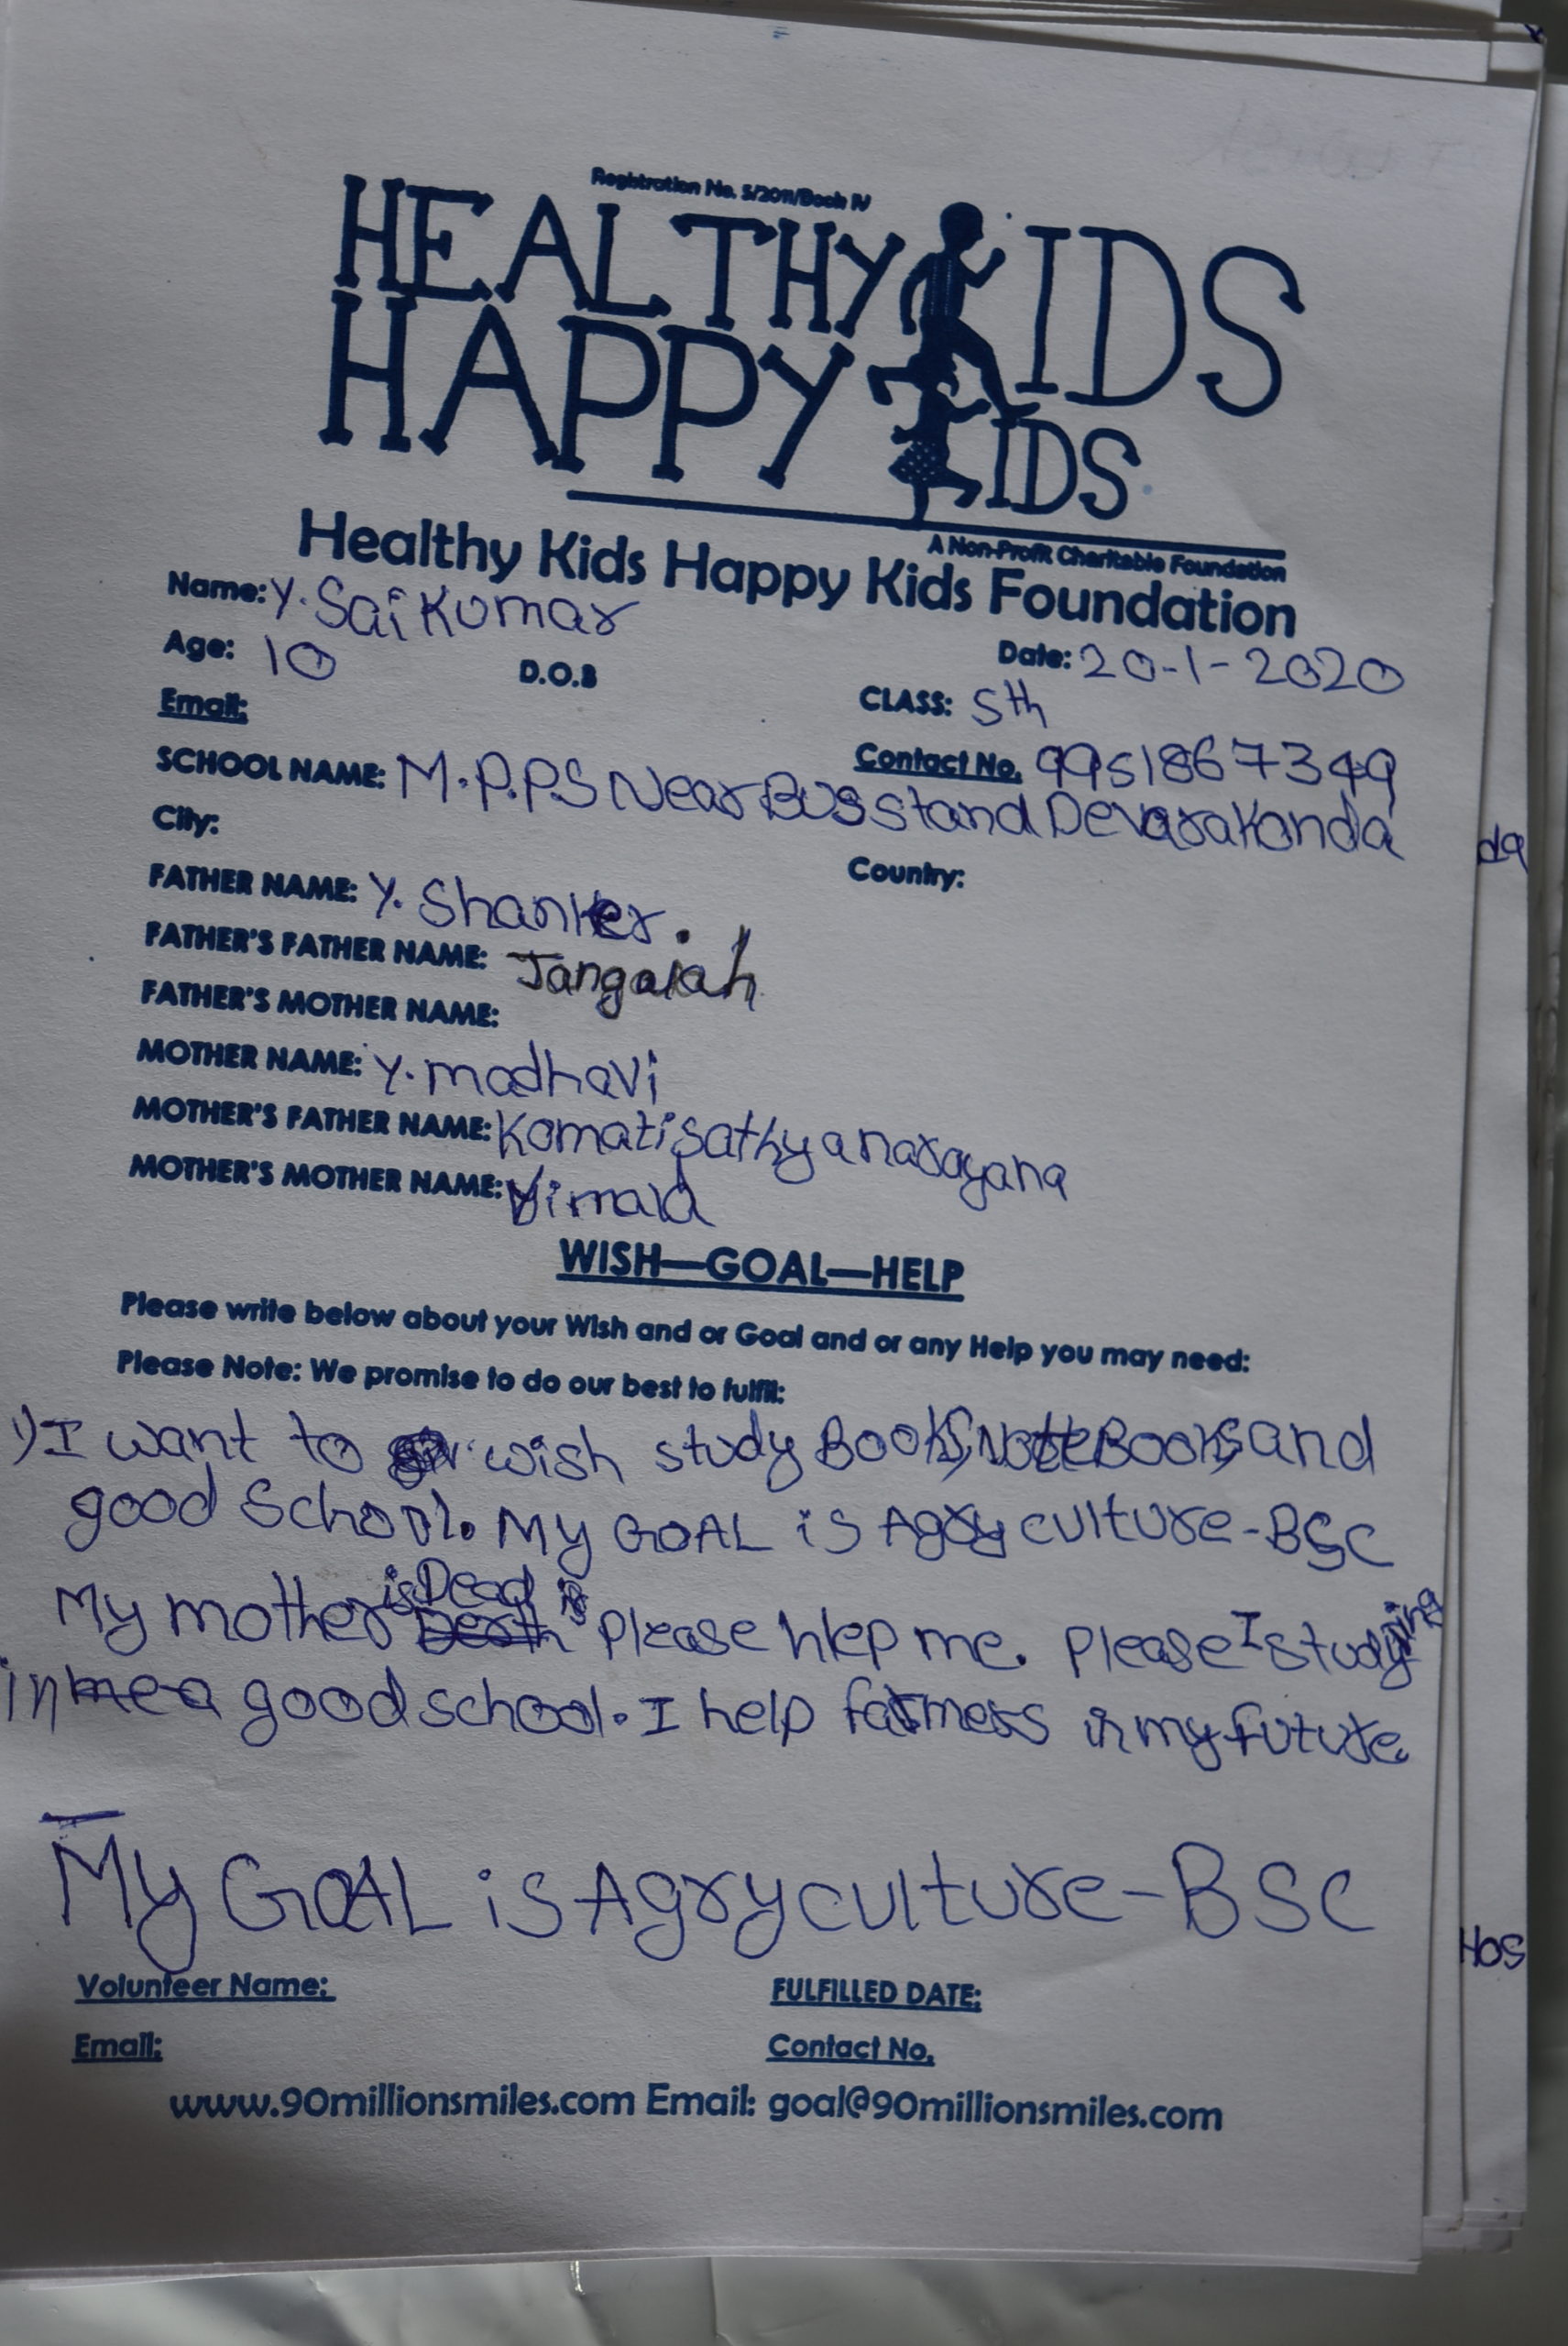 Registration No. 5/2011/Book IV
HEALTHY KIDS
HAPPY KIDS
A Non-Profit Charitable Foundation
Healthy Kids Happy Kids Foundation
Name: Y. Sai Kumar
Date: 20-1-2020
Age: 10 D.O.B CLASS: 5th
Email: Contact No. 9951867349
SCHOOL NAME: M.P.P.S Near Bus stand Devarakonda
City: Country:
FATHER NAME: Y. Shanker.
FATHER'S FATHER NAME: Jangaiah
FATHER'S MOTHER NAME:
MOTHER NAME: Y. madhavi
MOTHER'S FATHER NAME: Komatisathyanarayana
MOTHER'S MOTHER NAME: Vimala
WISH—GOAL—HELP
Please write below about your Wish and or Goal and or any Help you may need:
Please Note: We promise to do our best to fulfil:
1) I want to wish study Books, Note Books and
good School. My GOAL is Agryculture-BSC
My mother is Dead Please hlep me. Please I studying
in good school. I help farmers in my future.
My GOAL is Agryculture-BSC
Volunteer Name: FULFILLED DATE:
Email: Contact No.
www.90millionsmiles.com Email: goal@90millionsmiles.com
da
Hos